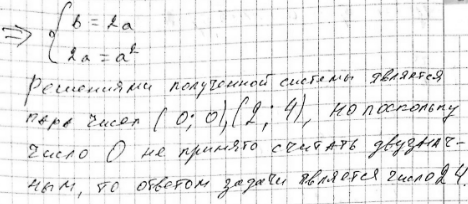 ⇒ { b = 2a
2a = a²
Решениями полученной системы является
пара чисел (0; 0), (2; 4), но поскольку
число 0 не принято считать двузнач-
ным, то ответом задачи является число 24.